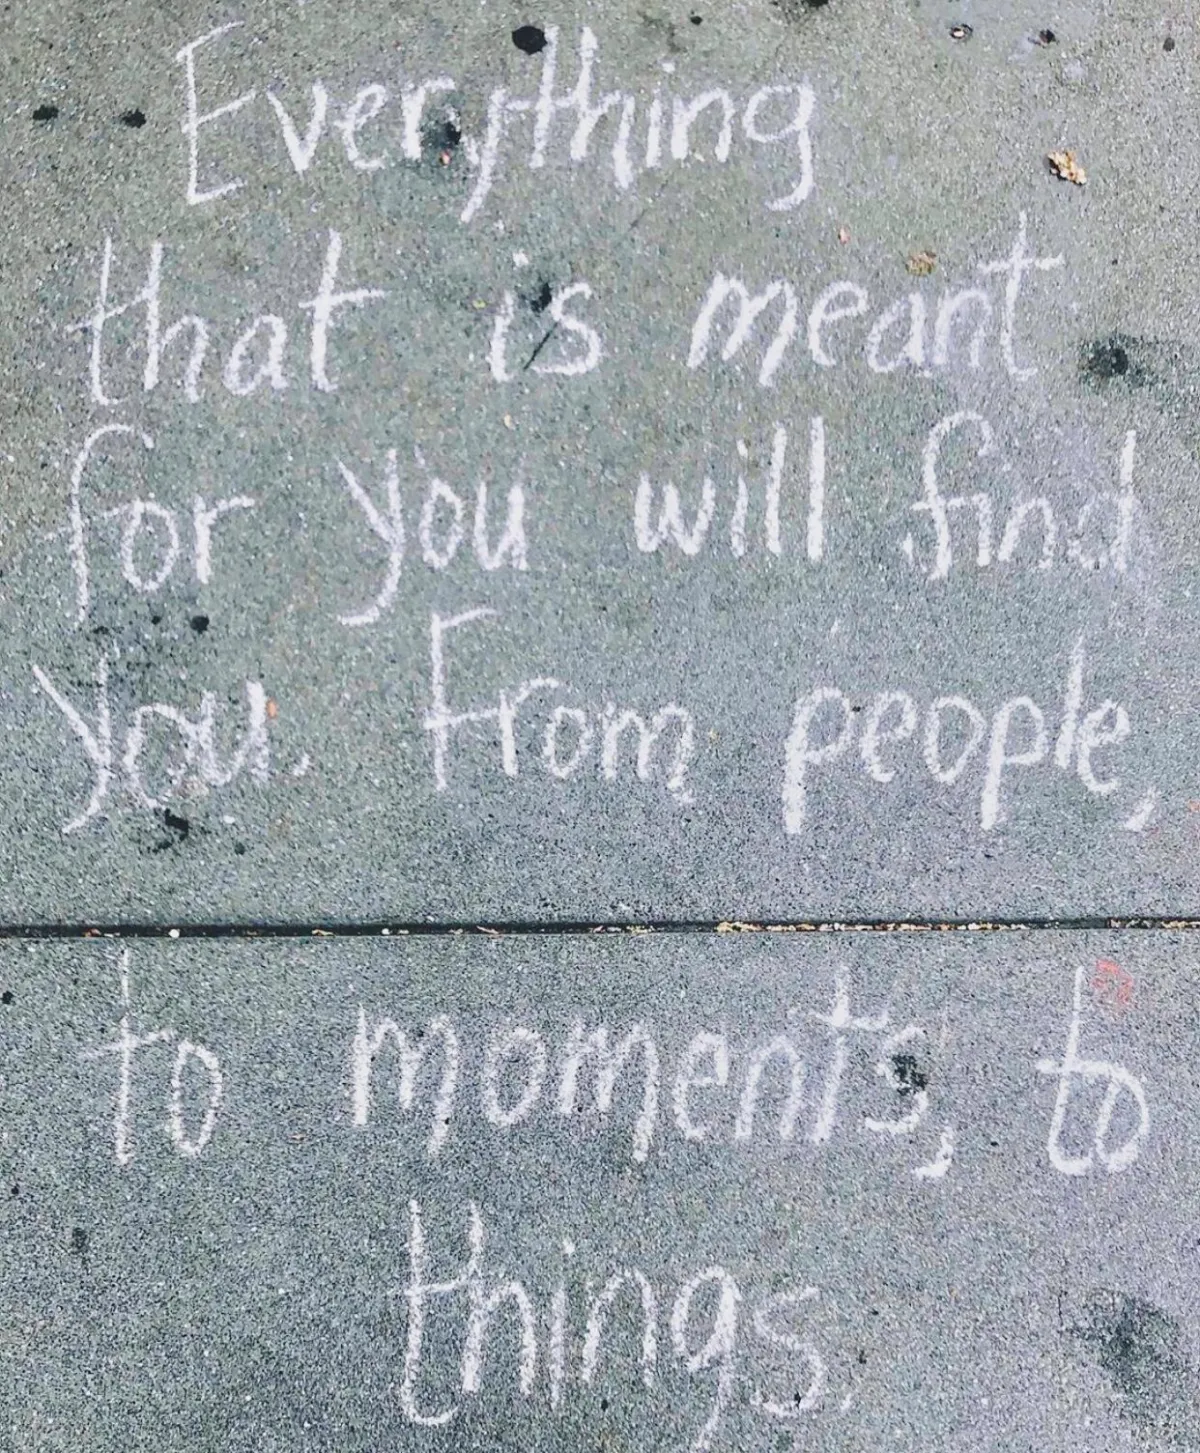 Everything
that is meant
for you will find
you. From people,
to moments, to
things.